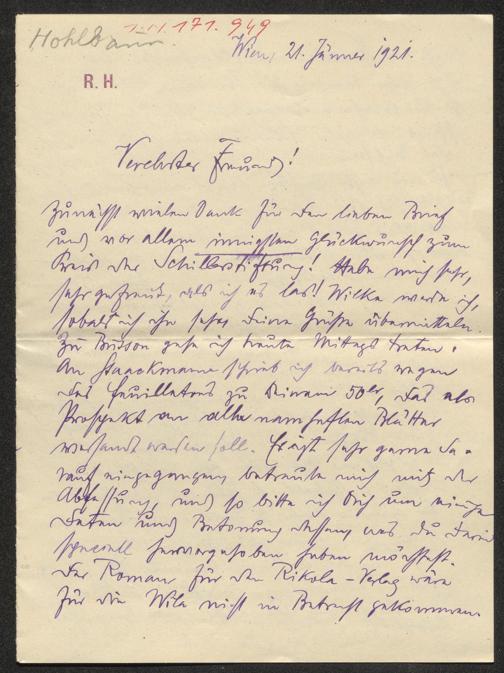 I.N. 171.949
Hohlbaum.
Wien, 21. Jänner 1921.
R. H.
Verehrter Freund!
Zunächst vielen Dank für den lieben Brief
und vor allem innigsten Glückwunsch zum
Preis der Schillerstiftung! Habe mich sehr,
sehr gefreut, als ich es las! Wilke werde ich,
sobald ich ihn sehe, Deine Grüße übermitteln.
Zu gehe ich heute Mittags
An Staackmann schrieb ich bereits wegen
des Feuilletons zu Deinem 50er, das als
Prospekt an alle namhaften Blätter
versandt werden soll. Er ist sehr gerne da-
rauf eingegangen, betraute mich mit der
Abfassung, und so bitte ich Dich um einige
Daten und Betonung dessen, was Du darin
speciell hervorgehoben haben möchtest.
Der Roman für den Rikola-Verlag wäre
für die Wila nicht in Betracht gekommen.